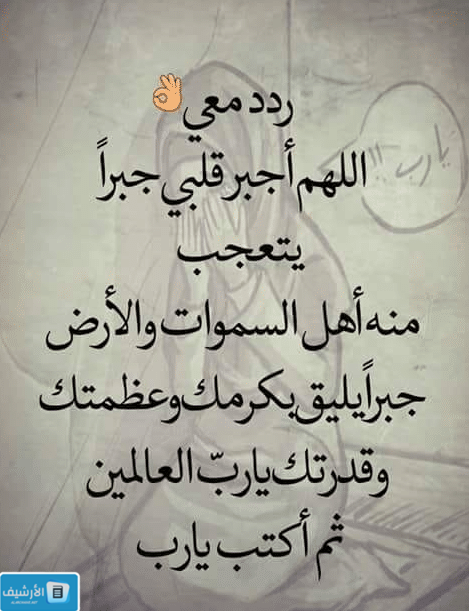 ردد معي👌
اللهم أجبر قلبي جبراً
يتعجب
منه أهل السموات والأرض
جبراً يليق بكرمك وعظمتك
وقدرتك يا ربّ العالمين
ثم أكتب يارب
يارب
الأرشيف